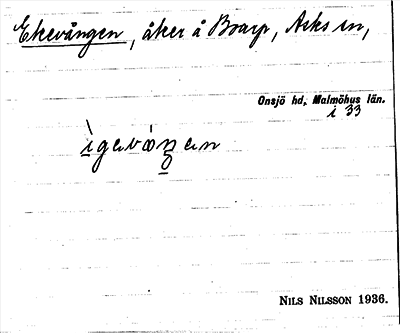 Ekevången, åker å Boarp, Asks sn,
Onsjö hd, Malmöhus län.
i 33
NILS NILSSON 1936.